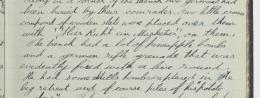 along in a corner of the trench two germans had
been buried by their comrades. Two little crosses
composed of wooden slabs were placed over them
with "Hier Ruht ein Musketier", on them.
The trench had a lot of pineapple bombs
and a german rifle grenade that was
evidently fired
He had some stokes bombs explosed in the
big retreat and of course piles of